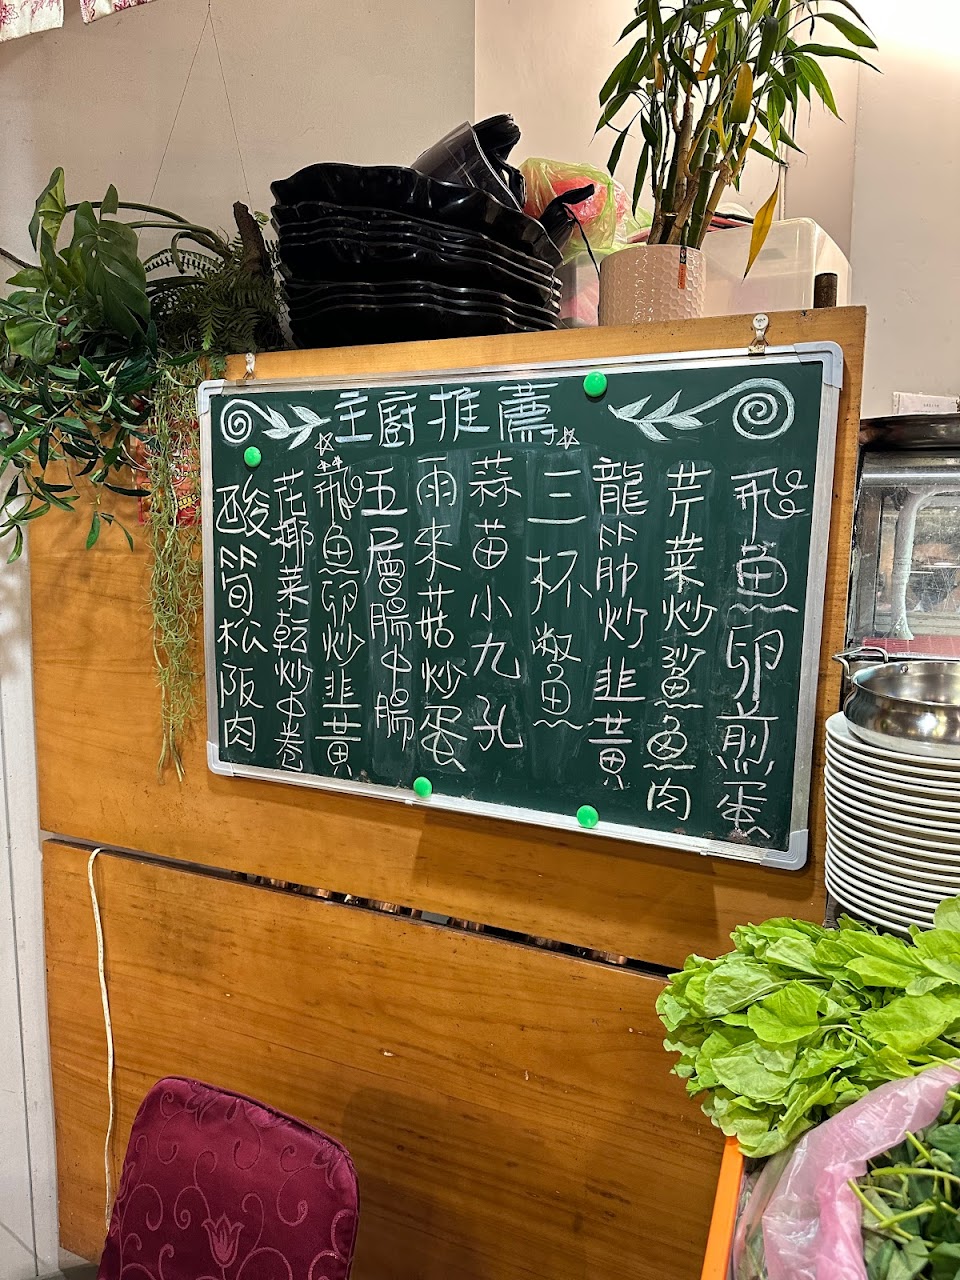 主廚推薦
飛魚卵煎蛋
芹菜炒鯊魚肉
龍筋炒韭黃
三杯魚
蒜苗小九孔
雨來菇炒蛋
五層腸中腸
飛魚卵炒韭黃
花椰菜乾炒中卷
酸筍松阪肉